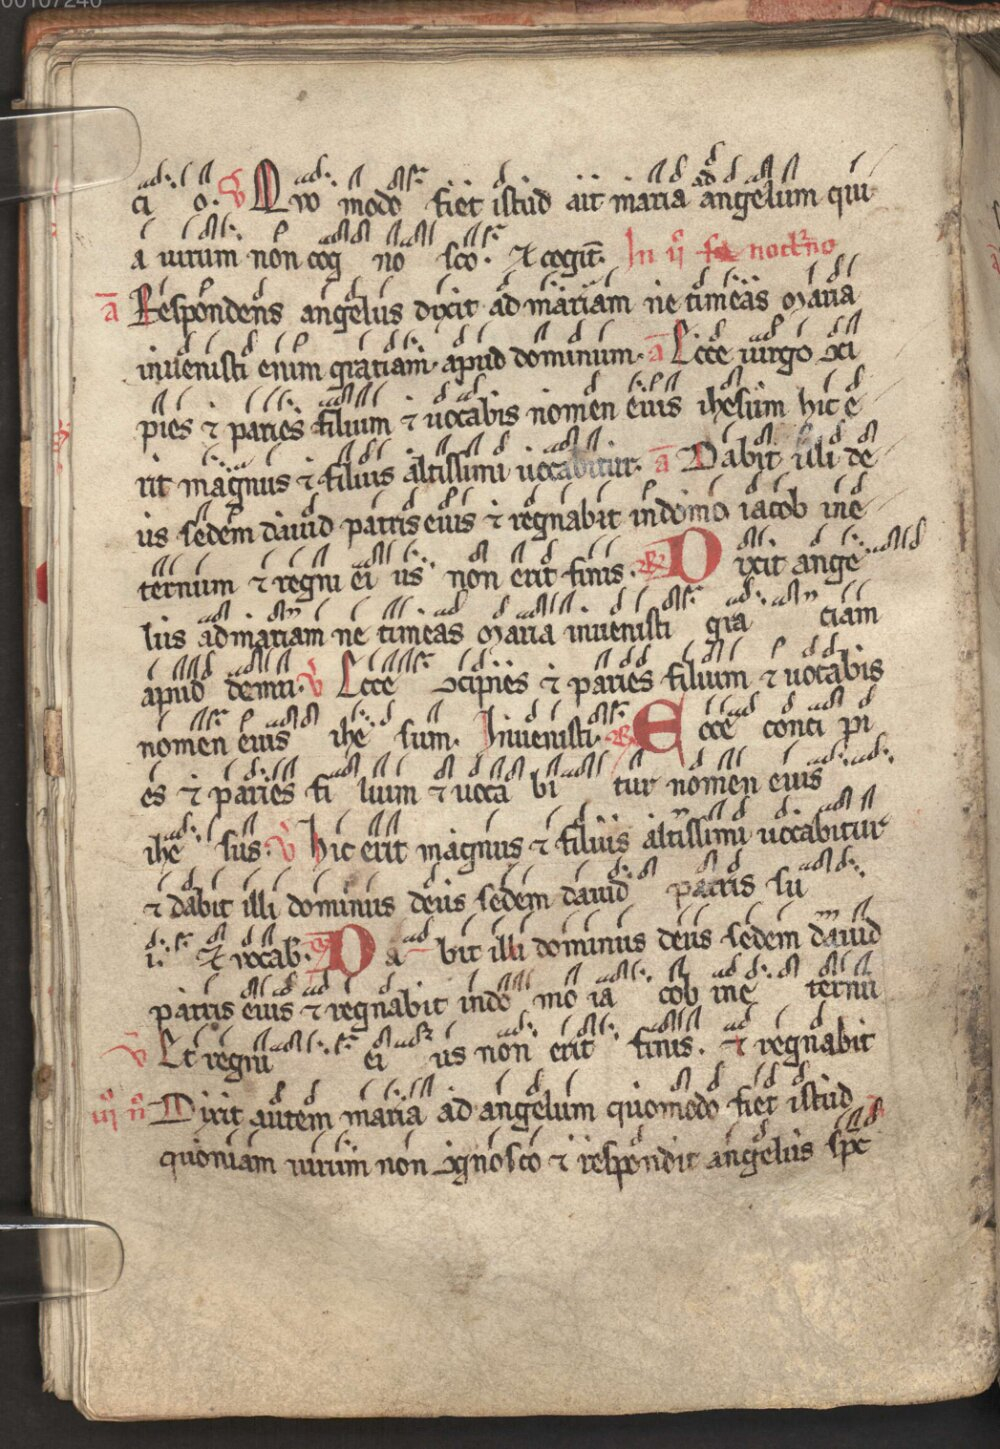 00107240
ci o. V Quo modo fiet istud ait maria ad angelum qui
a uirum non cog no sco. Et cogit. In ij noct͛no
a Respondens angelus dixit ad mariam ne timeas maria
inuenisti enim gratiam apud dominum. a Ecce uirgo ↄci
pies ⁊ paries filium ⁊ uocabis nomen eius ihesum hic e
rit magnus ⁊ filius altissimi uocabitur. a Dabit illi de
us sedem dauid patris eius ⁊ regnabit in domo iacob in e
ternum ⁊ regni ei us non erit finis. R Dixit ange
lus ad mariam ne timeas maria inuenisti gra ciam
apud dominū. V Ecce ↄcipies ⁊ paries filium ⁊ uocabis
nomen eius ihe sum. Inuenisti. R Ecce conci pi
es ⁊ paries fi lium ⁊ uoca bi tur nomen eius
ihe sus. V Hic erit magnus ⁊ filius altissimi uocabitur
⁊ dabit illi dominus deus sedem dauid patris su
i. Et vocab. R Da bit illi dominus deus sedem dauid
patris eius ⁊ regnabit in do mo ia cob in e ternū
V Et regni ei us non erit finis. ⁊ regnabit
iij n̄ Dixit autem maria ad angelum quomodo fiet istud
quoniam uirum non ↄgnosco ⁊ respondit angelus spc